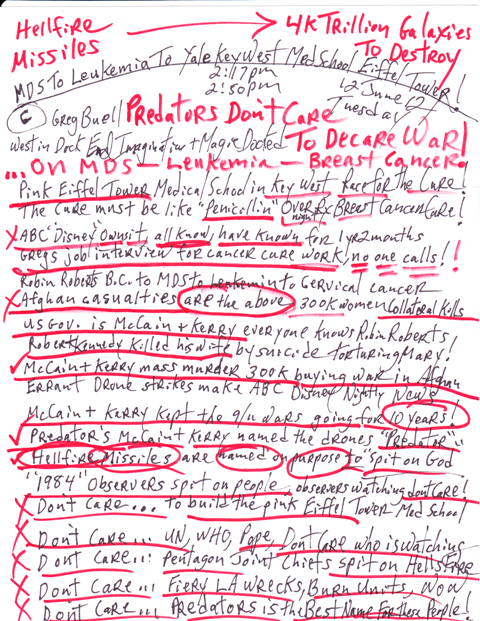 Hellfire → 4K Trillion Galaxies
Missiles To Destroy
MDS To Leukemia To Yale Key West Med School Eiffel Tower!
2:17pm
2:50pm 12 June 12
Tuesday
6 Greg Buell Predators Don't Care
West in Dock End Imagination + Magic Docked To Decare War!
...on MDS - Leukemia - Breast Cancer
Pink Eiffel Tower Medical School in Key West Race for the Cure!
The Cure must be like "Penicillin" Over night Rx Breast Cancer Cure!
X ABC "Disney" Own it, all know, have known for 1yr 2 months
Gregs job interview for cancer cure work, no one calls!!
Robin Roberts B.C. to MDS to Leukemia to Cervical cancer
X Afghan casualties are the above 300K women Collateral Kills
US Gov. is McCain + Kerry everyone knows Robin Roberts
Robert Kennedy killed his wife by suicide torturing Mary!
✓ McCain + Kerry mass murder 300K buying war in Afghan
Errant Drone strikes make ABC Disney Nightly News
McCain + Kerry kept the 9/11 wars going for 10 years!
✓ Predator's McCain + Kerry named the drones "Predator"
✓ Hellfire Missiles are named on purpose to spit on God
"1984" Observers spit on people observers watching dont care!
X Don't Care... to build the pink Eiffel Tower Med School
X Don't Care... UN, WHO, Pope, Don't Care who is watching
X Don't Care... Pentagon Joint Chiefs spit on Hells Fire
X Don't Care... Fiery LA Wrecks, Burn Units, Now
X Don't Care... Predators is the Best Name For these People!